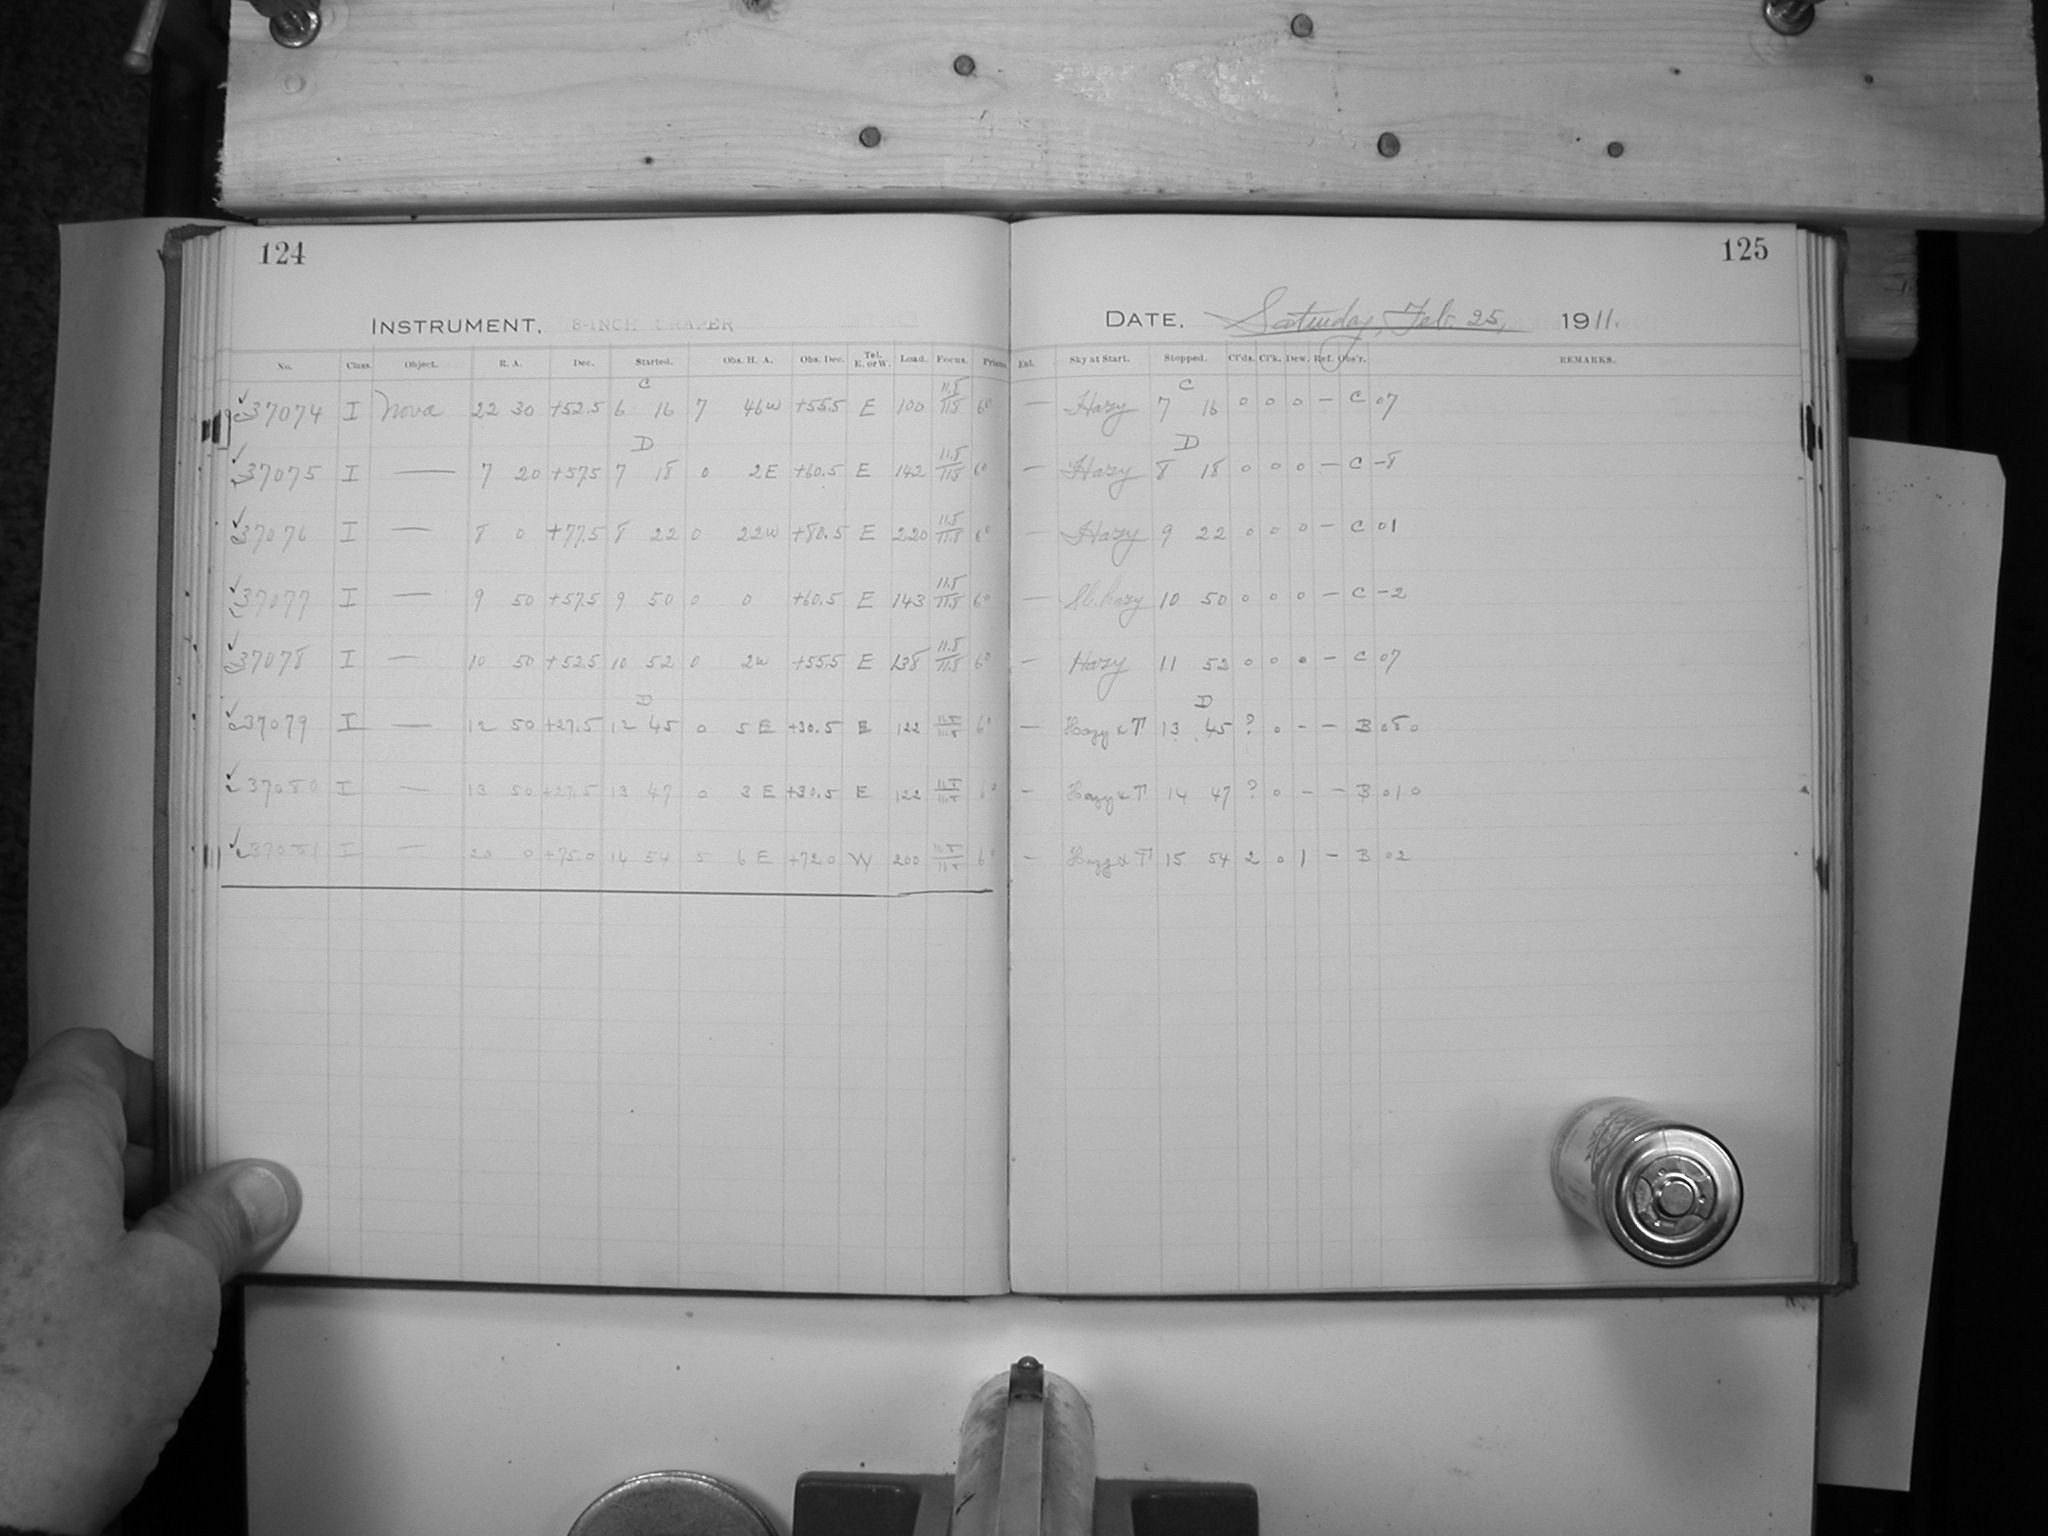 124
INSTRUMENT. 8-INCH DRAPER
No. Class. Object. R. A. Dec. Started. Obs. H. A. Obs. Dec. Tel. E. or W. Load. Focus. Prism.
C
c37074 I Nova 22 30 +52.5 6 16 7 46W +55.5 E 100 11.8/11.8 6°
D
c37075 I — 7 20 +57.5 7 18 0 2E +60.5 E 142 11.8/11.8 6°
c37076 I — 8 0 +77.5 8 22 0 22W +80.5 E 220 11.8/11.8 6°
c37077 I — 9 50 +57.5 9 50 0 0 +60.5 E 143 11.8/11.8 6°
c37078 I — 10 50 +52.5 10 52 0 2W +55.5 E 138 11.8/11.8 6°
D
c37079 I — 12 50 +27.5 12 45 0 5 E +30.5 E 122 11.8/11.8 6°
c37080 I — 13 50 +27.5 13 47 0 3 E +30.5 E 122 11.8/11.8 6°
c37081 I — 20 0 +75.0 14 54 5 6 E +72.0 W 200 11.8/11.8 6°
125
DATE. Saturday, Feb. 25, 1911.
Ent. Sky at Start. Stopped. Cl'ds. Cl'k. Dew. Ref. Obs'r. REMARKS.
C
— Hazy 7 16 0 0 0 — C 07
D
— Hazy 8 18 0 0 0 — C -8
— Hazy 9 22 0 0 0 — C 01
— Sl. hazy 10 50 0 0 0 — C -2
— Hazy 11 52 0 0 0 — C 07
D
— Hazy & T 13 45 ? 0 - — B 080
— Hazy & T 14 47 ? 0 - — B 010
— Hazy & T 15 54 2 0 1 — B 02